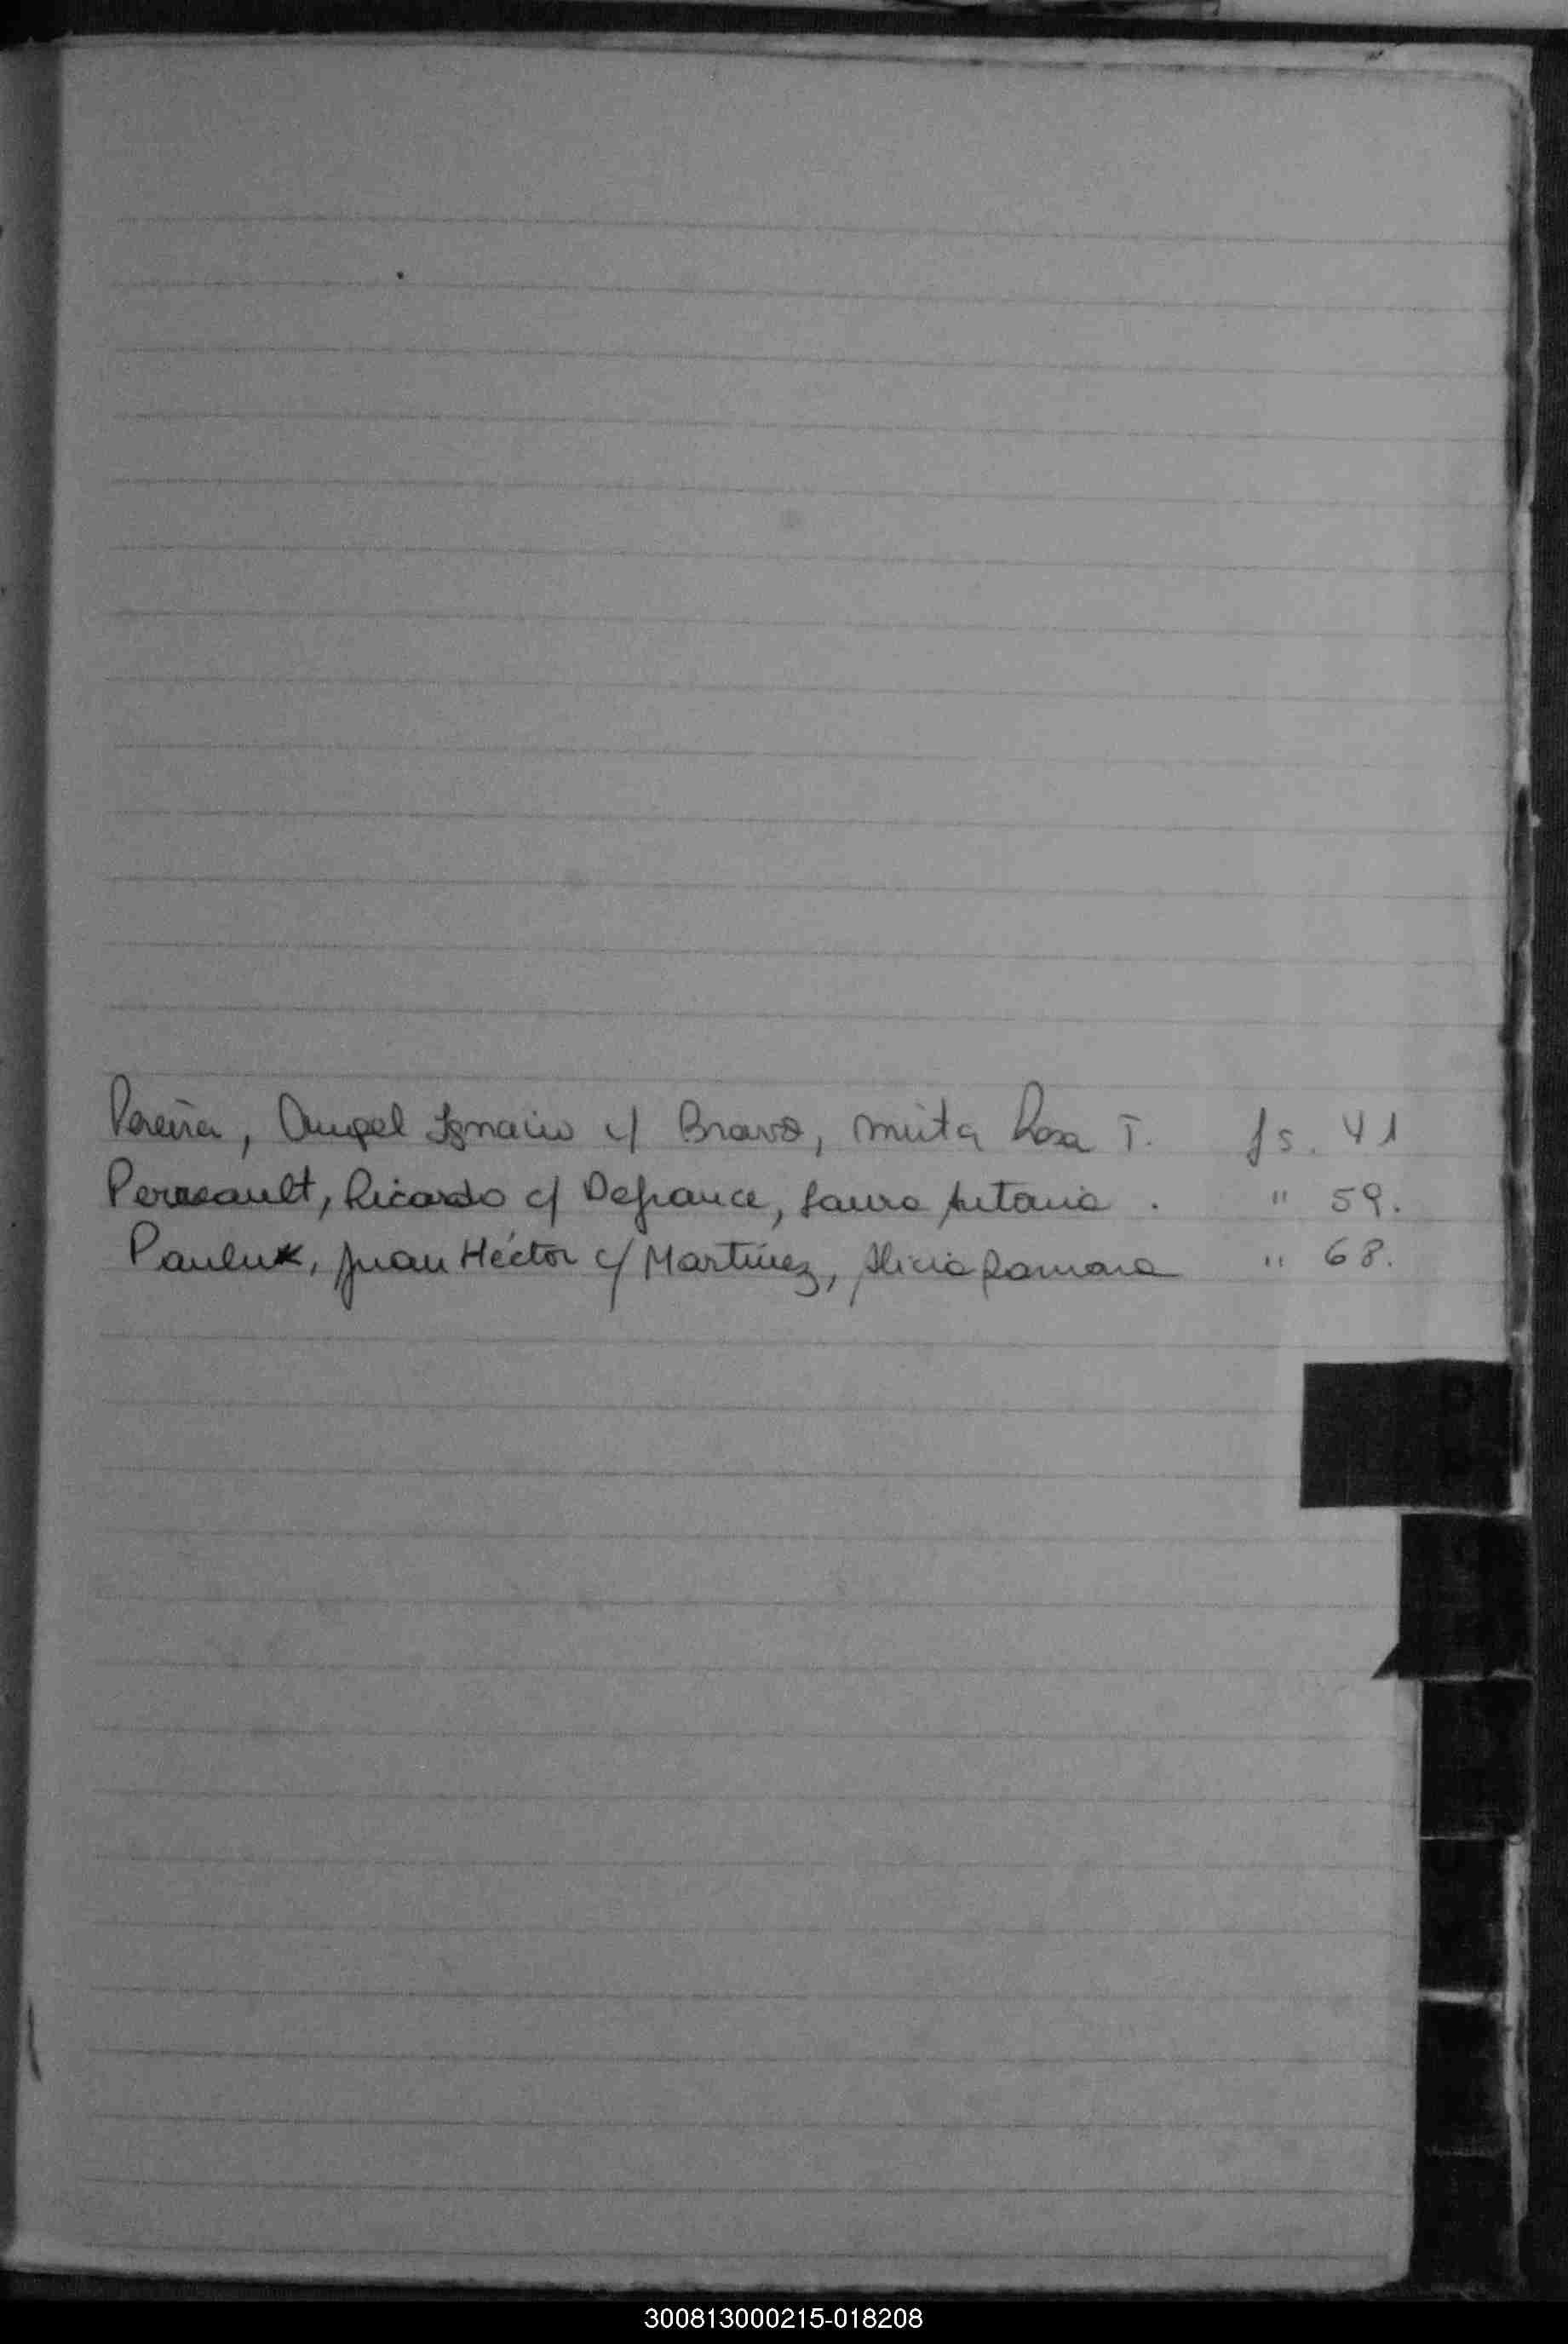 Pereira, Angel Ignacio c/ Bravo, Mirta Rosa T. fs. 41
Perreault, Ricardo c/ Defrance, Laura Antonia . " 59.
Pauluk, Juan Héctor c/ Martínez, Alicia Ramona " 68.
300813000215-018208